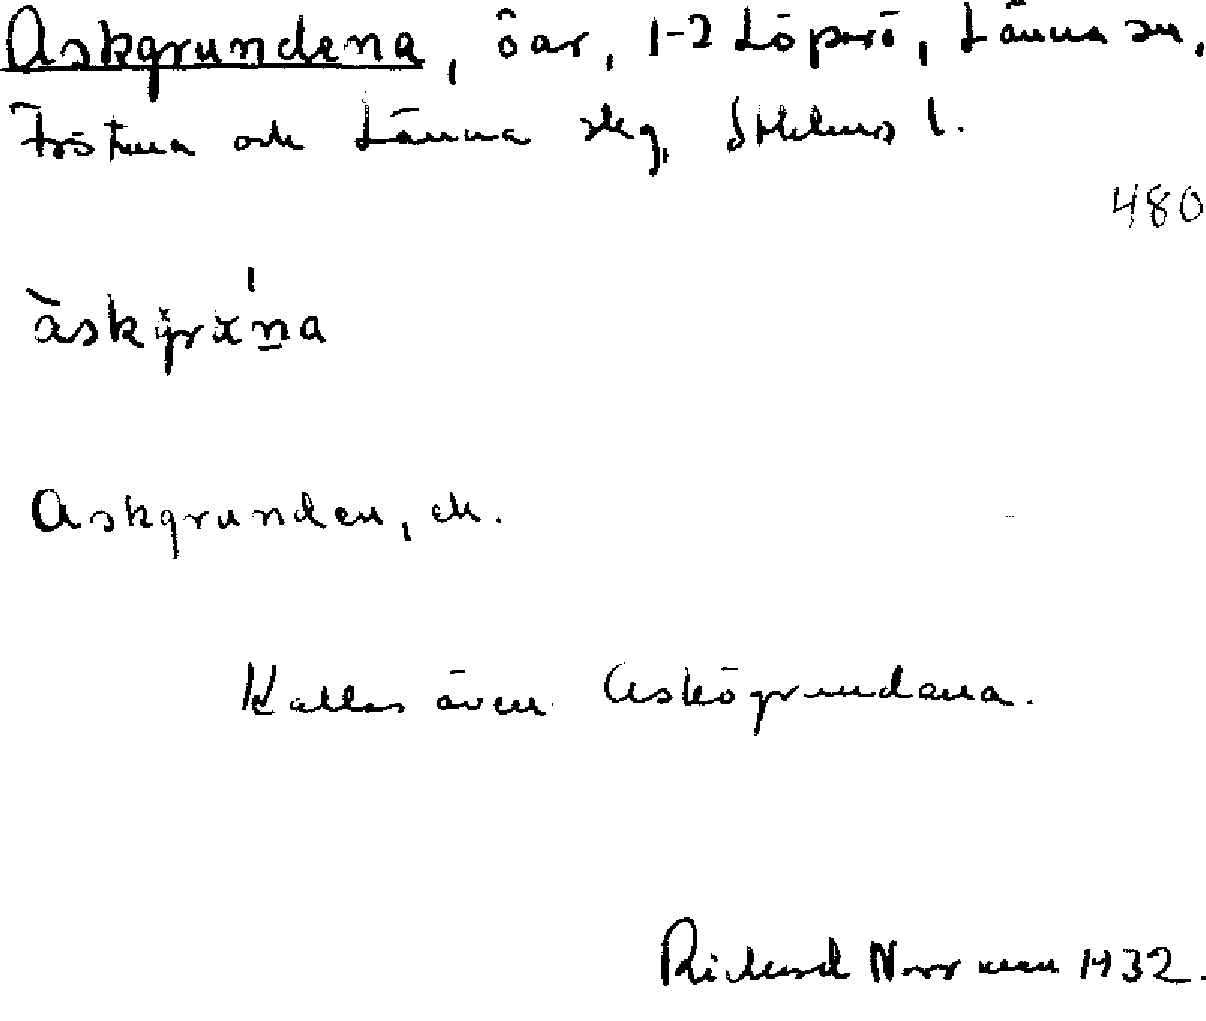 Askgrundena, öar, 1-2 Löparö, Länna sn,
Frötuna och Länna skg, Sthlms l.
480
àskgrx́na
Askgrunden, ek.
Kallas även Askögrundena.
Richard Norrman 1932.